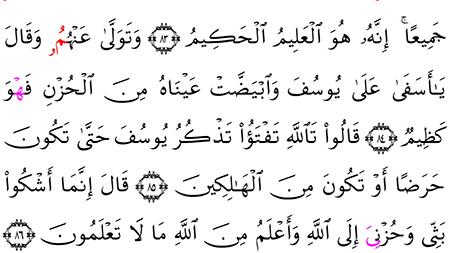 جَمِيعًا ۚ إِنَّهُۥ هُوَ الْعَلِيمُ الْحَكِيمُ ۝٨٣ وَتَوَلَّىٰ عَنْهُمُۥ وَقَالَ
يَٰأَسَفَىٰ عَلَىٰ يُوسُفَ وَابْيَضَّتْ عَيْنَاهُ مِنَ الْحُزْنِ فَهْوَ
كَظِيمٌ ۝٨٤ قَالُوا تَاللَّهِ تَفْتَؤُا تَذْكُرُ يُوسُفَ حَتَّىٰ تَكُونَ
حَرَضًا أَوْ تَكُونَ مِنَ الْهَٰلِكِينَ ۝٨٥ قَالَ إِنَّمَا أَشْكُوا
بَثِّي وَحُزْنِيَ إِلَى اللَّهِ وَأَعْلَمُ مِنَ اللَّهِ مَا لَا تَعْلَمُونَ ۝٨٦